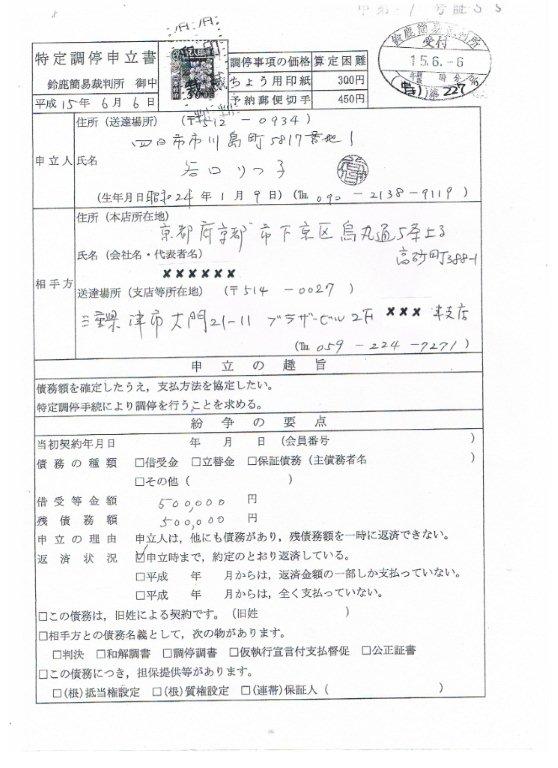 特定調停申立書
鈴鹿簡易裁判所 御中
平成15年6月6日
調停事項の価格 算定困難
ちょう用印紙 300円
予納郵便切手 450円
鈴鹿簡易裁判所
受付
15.6.-6
申立人
住所(送達場所) (〒512-0934)
四日市市川島町5817番地1
氏名
谷口りつ子
(生年月日昭和24年1月9日)(℡090-2138-9119)
相手方
住所(本店所在地)
京都府京都市下京区烏丸通5条上る
高砂町388-1
氏名(会社名・代表者名)
××××××
送達場所(支店等所在地) (〒514-0027)
三重県津市大門21-11 プラザービル2F ××× 津支店
(℡059-224-7271)
申立の趣旨
債務額を確定したうえ,支払方法を協定したい。
特定調停手続により調停を行うことを求める。
紛争の要点
当初契約年月日 年 月 日 (会員番号 )
債務の種類 □借受金 □立替金 □保証債務(主債務者名 )
□その他( )
借受等金額 500,000 円
残債務額 500,000 円
申立の理由 申立人は,他にも債務があり,残債務額を一時に返済できない。
返済状況 ☑申立時まで,約定のとおり返済している。
□平成 年 月からは,返済金額の一部しか支払っていない。
□平成 年 月からは,全く支払っていない。
□この債務は,旧姓による契約です。(旧姓 )
□相手方との債務名義として,次の物があります。
□判決 □和解調書 □調停調書 □仮執行宣言付支払督促 □公正証書
□この債務につき,担保提供等があります。
□(根)抵当権設定 □(根)質権設定 □(連帯)保証人( )